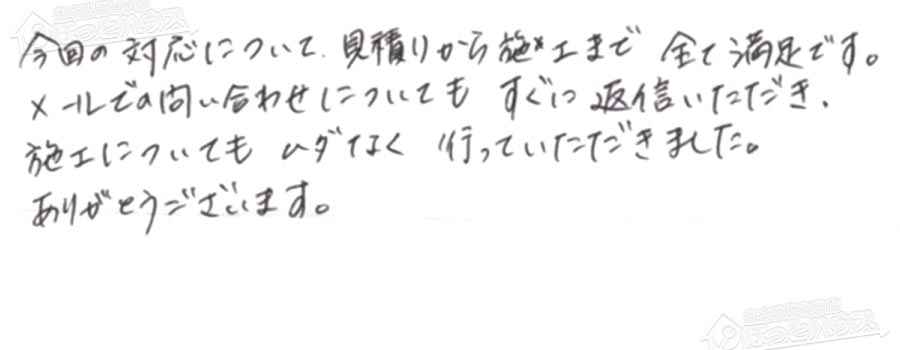 今回の対応について、見積りから施工まで 全て満足です。
メールでの問い合わせについても すぐに返信いただき、
施工についても ムダなく 行っていただきました。
ありがとうございます。
ほっとハウス
ほっとハウス